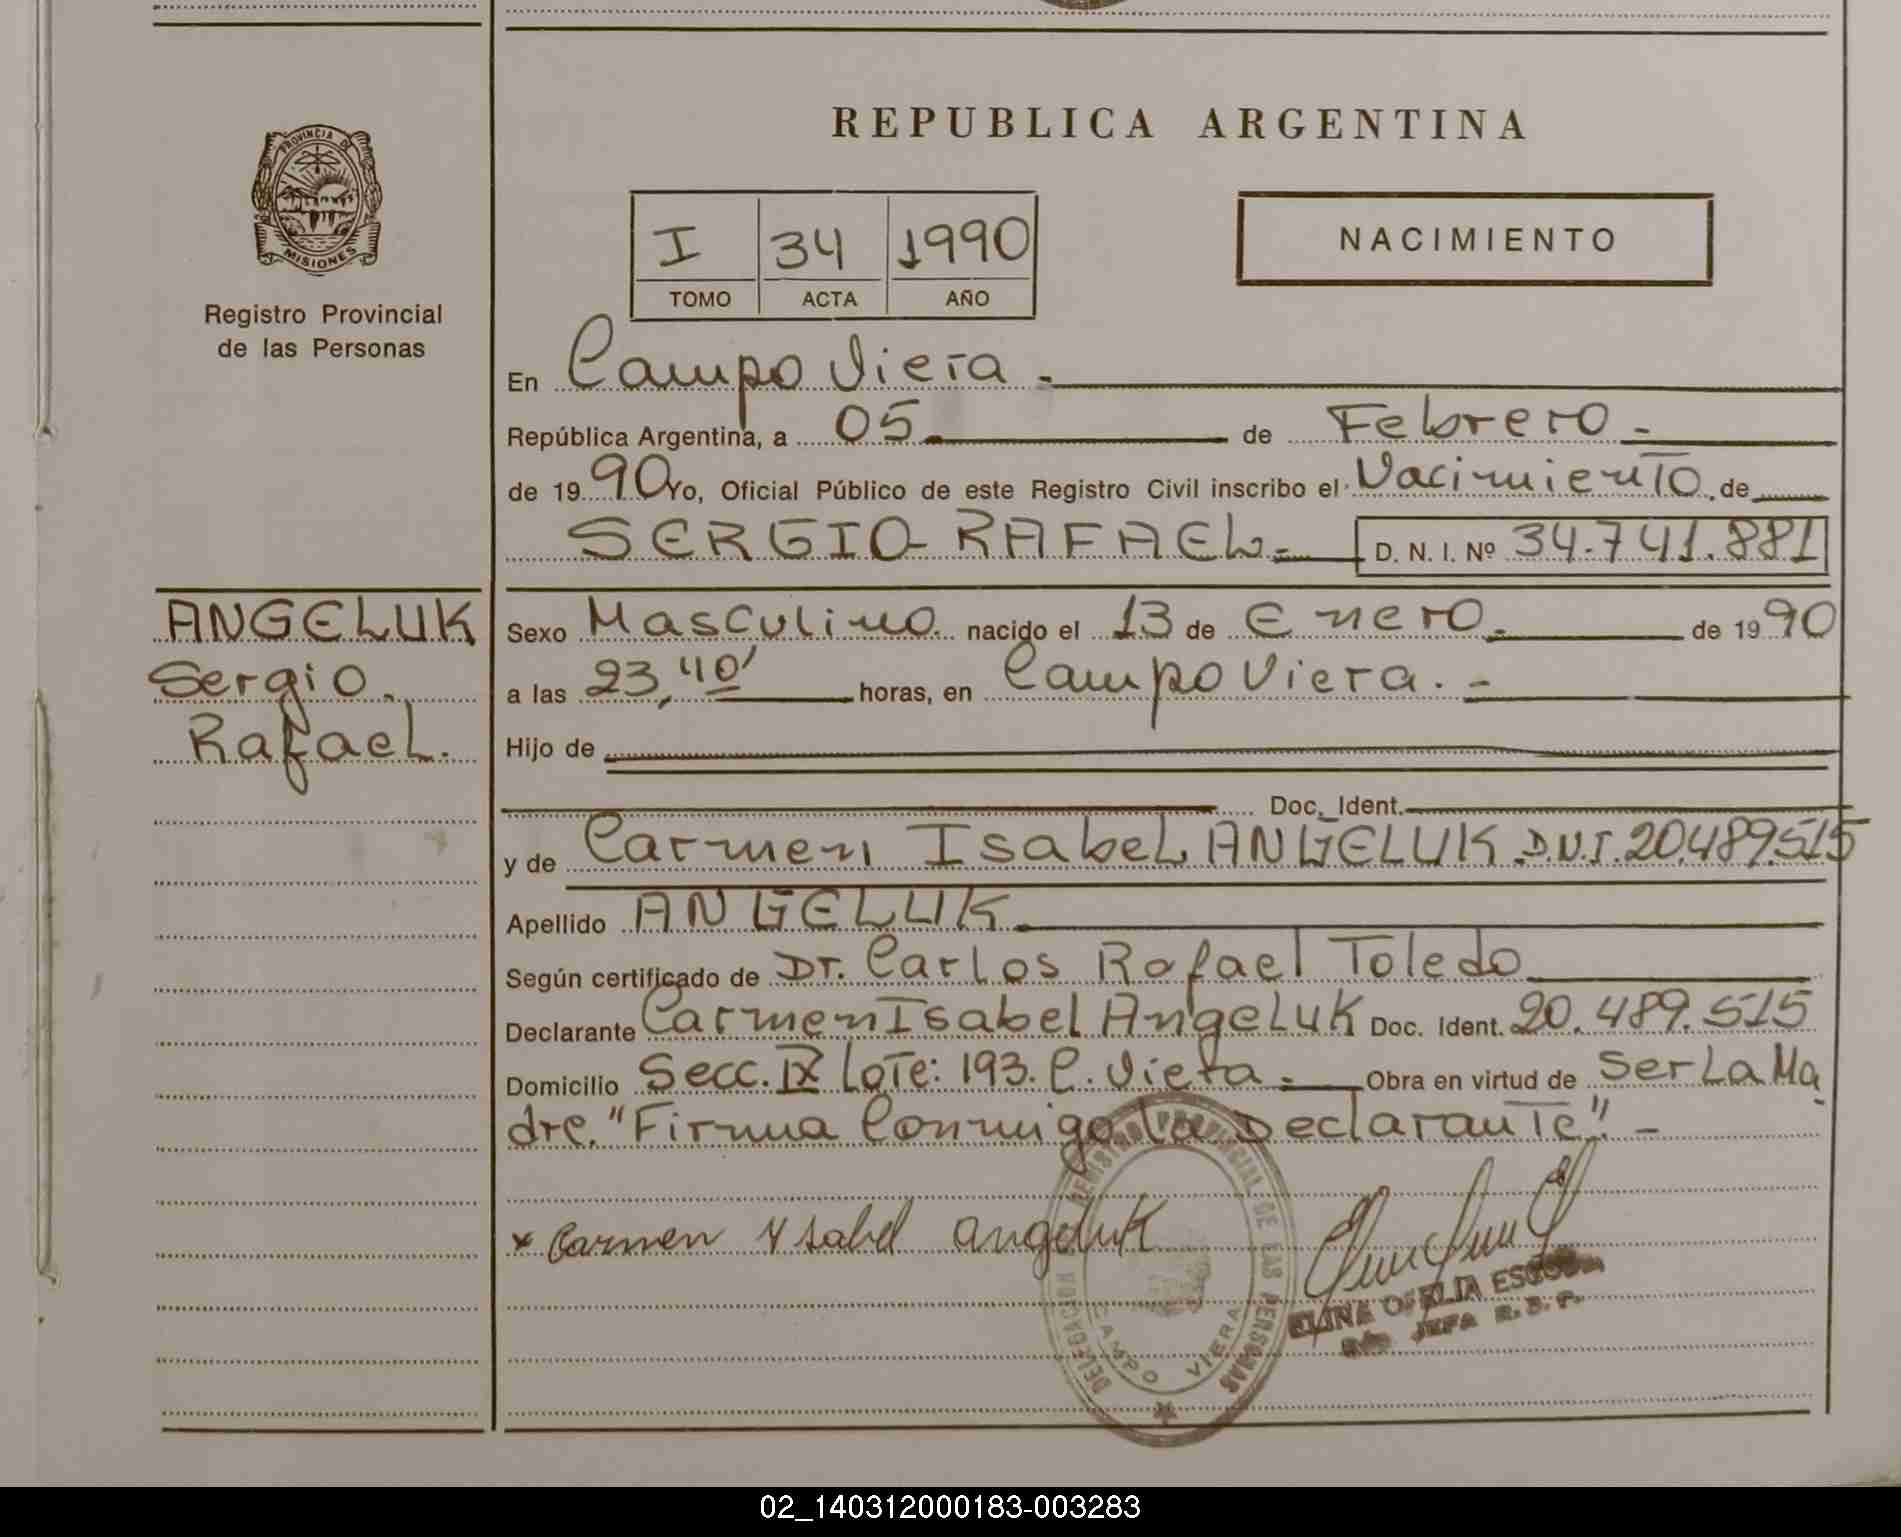 REPUBLICA ARGENTINA
PROVINCIA DE
MISIONES
Registro Provincial
de las Personas
I 34 1990
TOMO ACTA AÑO
NACIMIENTO
En Campo Viera.-
República Argentina, a 05 de Febrero.-
de 1990 Yo, Oficial Público de este Registro Civil inscribo el Nacimiento de
SERGIO RAFAEL.- D. N. I. Nº 34.741.881
ANGELUK
Sergio
Rafael.
Sexo Masculino. nacido el 13 de Enero. de 1990
a las 23,40' horas, en Campo Viera.-
Hijo de
Doc. Ident.
y de Carmen Isabel ANGELUK. D.N.I. 20.489.515
Apellido ANGELUK
Según certificado de Dr. Carlos Rafael Toledo
Declarante Carmen Isabel Angeluk Doc. Ident. 20.489.515
Domicilio Secc. IX Lote: 193. C. Viera.- Obra en virtud de Ser La Ma
dre. "Firma Conmigo la Declarante" -
x Carmen Ysabel Angeluk
REGISTRO PROVINCIAL DE LAS PERSONAS
DELEGACION
CAMPO VIERA
ELINA OFELIA
JEFA R. B. P.
02_140312000183-003283